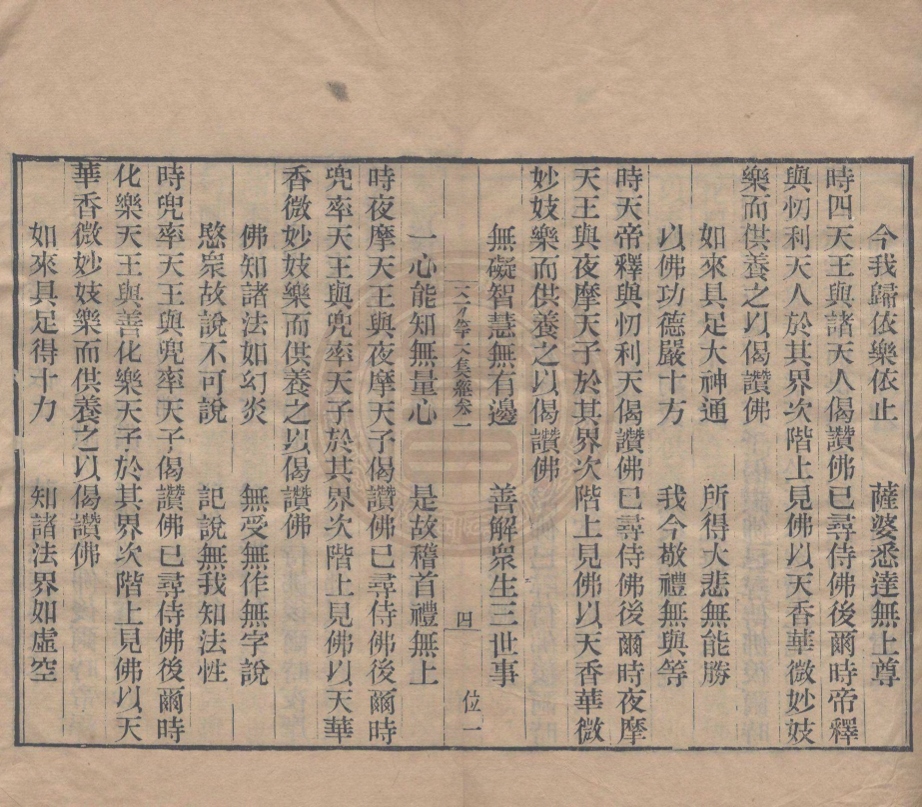 今我歸依樂依止　薩婆悉達無上尊
時四天王與諸天人偈讚佛已尋侍佛後爾時帝釋
與忉利天人於其界次階上見佛以天香華微妙妓
樂而供養之以偈讚佛
如來具足大神通　所得大悲無能勝
以佛功德嚴十方　我今敬禮無與等
時天帝釋與忉利天偈讚佛已尋侍佛後爾時夜摩
天王與夜摩天子於其界次階上見佛以天香華微
妙妓樂而供養之以偈讚佛
無礙智慧無有邊　善解衆生三世事
大方等大集經卷一　四　位一
一心能知無量心　是故稽首禮無上
時夜摩天王與夜摩天子偈讚佛已尋侍佛後爾時
兜率天王與兜率天子於其界次階上見佛以天華
香微妙妓樂而供養之以偈讚佛
佛知諸法如幻炎　無受無作無字說
愍衆故說不可說　記說無我知法性
時兜率天王與兜率天子偈讚佛已尋侍佛後爾時
化樂天王與善化樂天子於其界次階上見佛以天
華香微妙妓樂而供養之以偈讚佛
如來具足得十力　知諸法界如虛空